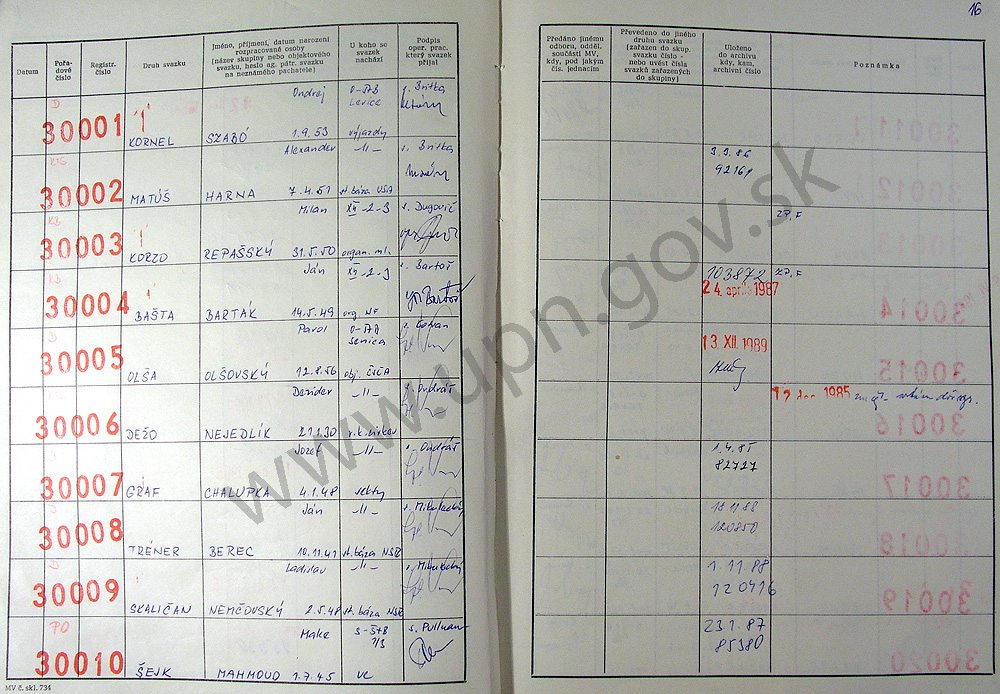 16
Datum
Pořa-
dové
číslo
Registr.
číslo
Druh svazku
Jméno, příjmení, datum narození
rozpracované osoby
(název skupiny nebo objektového
svazku, heslo ag. pátr. svazku
na neznámého pachatele)
U koho se
svazek
nachází
Podpis
oper. prac.
který svazek
přijal
Předáno jinému
odboru, odděl.
součásti MV,
kdy, pod jakým
čís. jednacím
Převedeno do jiného
druhu svazku
(zařazen do skup.
svazku číslo -
nebo uvést čísla
svazků zařazených
do skupiny)
Uloženo
do archivu
kdy, kam,
archivní číslo
Poznámka
D Ondrej Levice s. Britka
30001 KORNEL SZABÓ 1.9.53 výjazdy
KTS Alexander -"- s. Britka 3.3.86
30002 MATÚŠ HARNA 7.4.51 st. báza USA 92161
KB Milan XII-2-3 s. Dugovič ZP, F
30003 KORZO REPAŠSKÝ 31.5.50 organ. ml.
KB Ján XII-2-3 s. Bartoš 103872 ZP, F
30004 BAŠTA BARTÁK 14.5.49 org NF 24. apríla 1987
D Pavol Senica 13 XII. 1989
30005 OLŠA OLŠOVSKÝ 12.8.56 obj. ČSĽA
D Dezider -"- s. Ondráš 12 dec. 1985
30006 DEŽO NEJEDLÍK 1.30
Jozef -"- s. Ondráš 1.4.85
30007 GRAF CHALUPKA 4.1.48 sekty 82727
D Ján -"- 120850
30008 TRÉNER BEREC 10.11.41 st. báza NSR
D Ladislav -"- 1.11.88
30009 SKALIČAN NEMČOVSKÝ 2.5.48 st. báza NSR 120416
PO Make s. Pullman 23 1.87
30010 ŠEJK MAHMOUD 1.7.45 VC 85380
MV č. skl. 734
www.upn.gov.sk